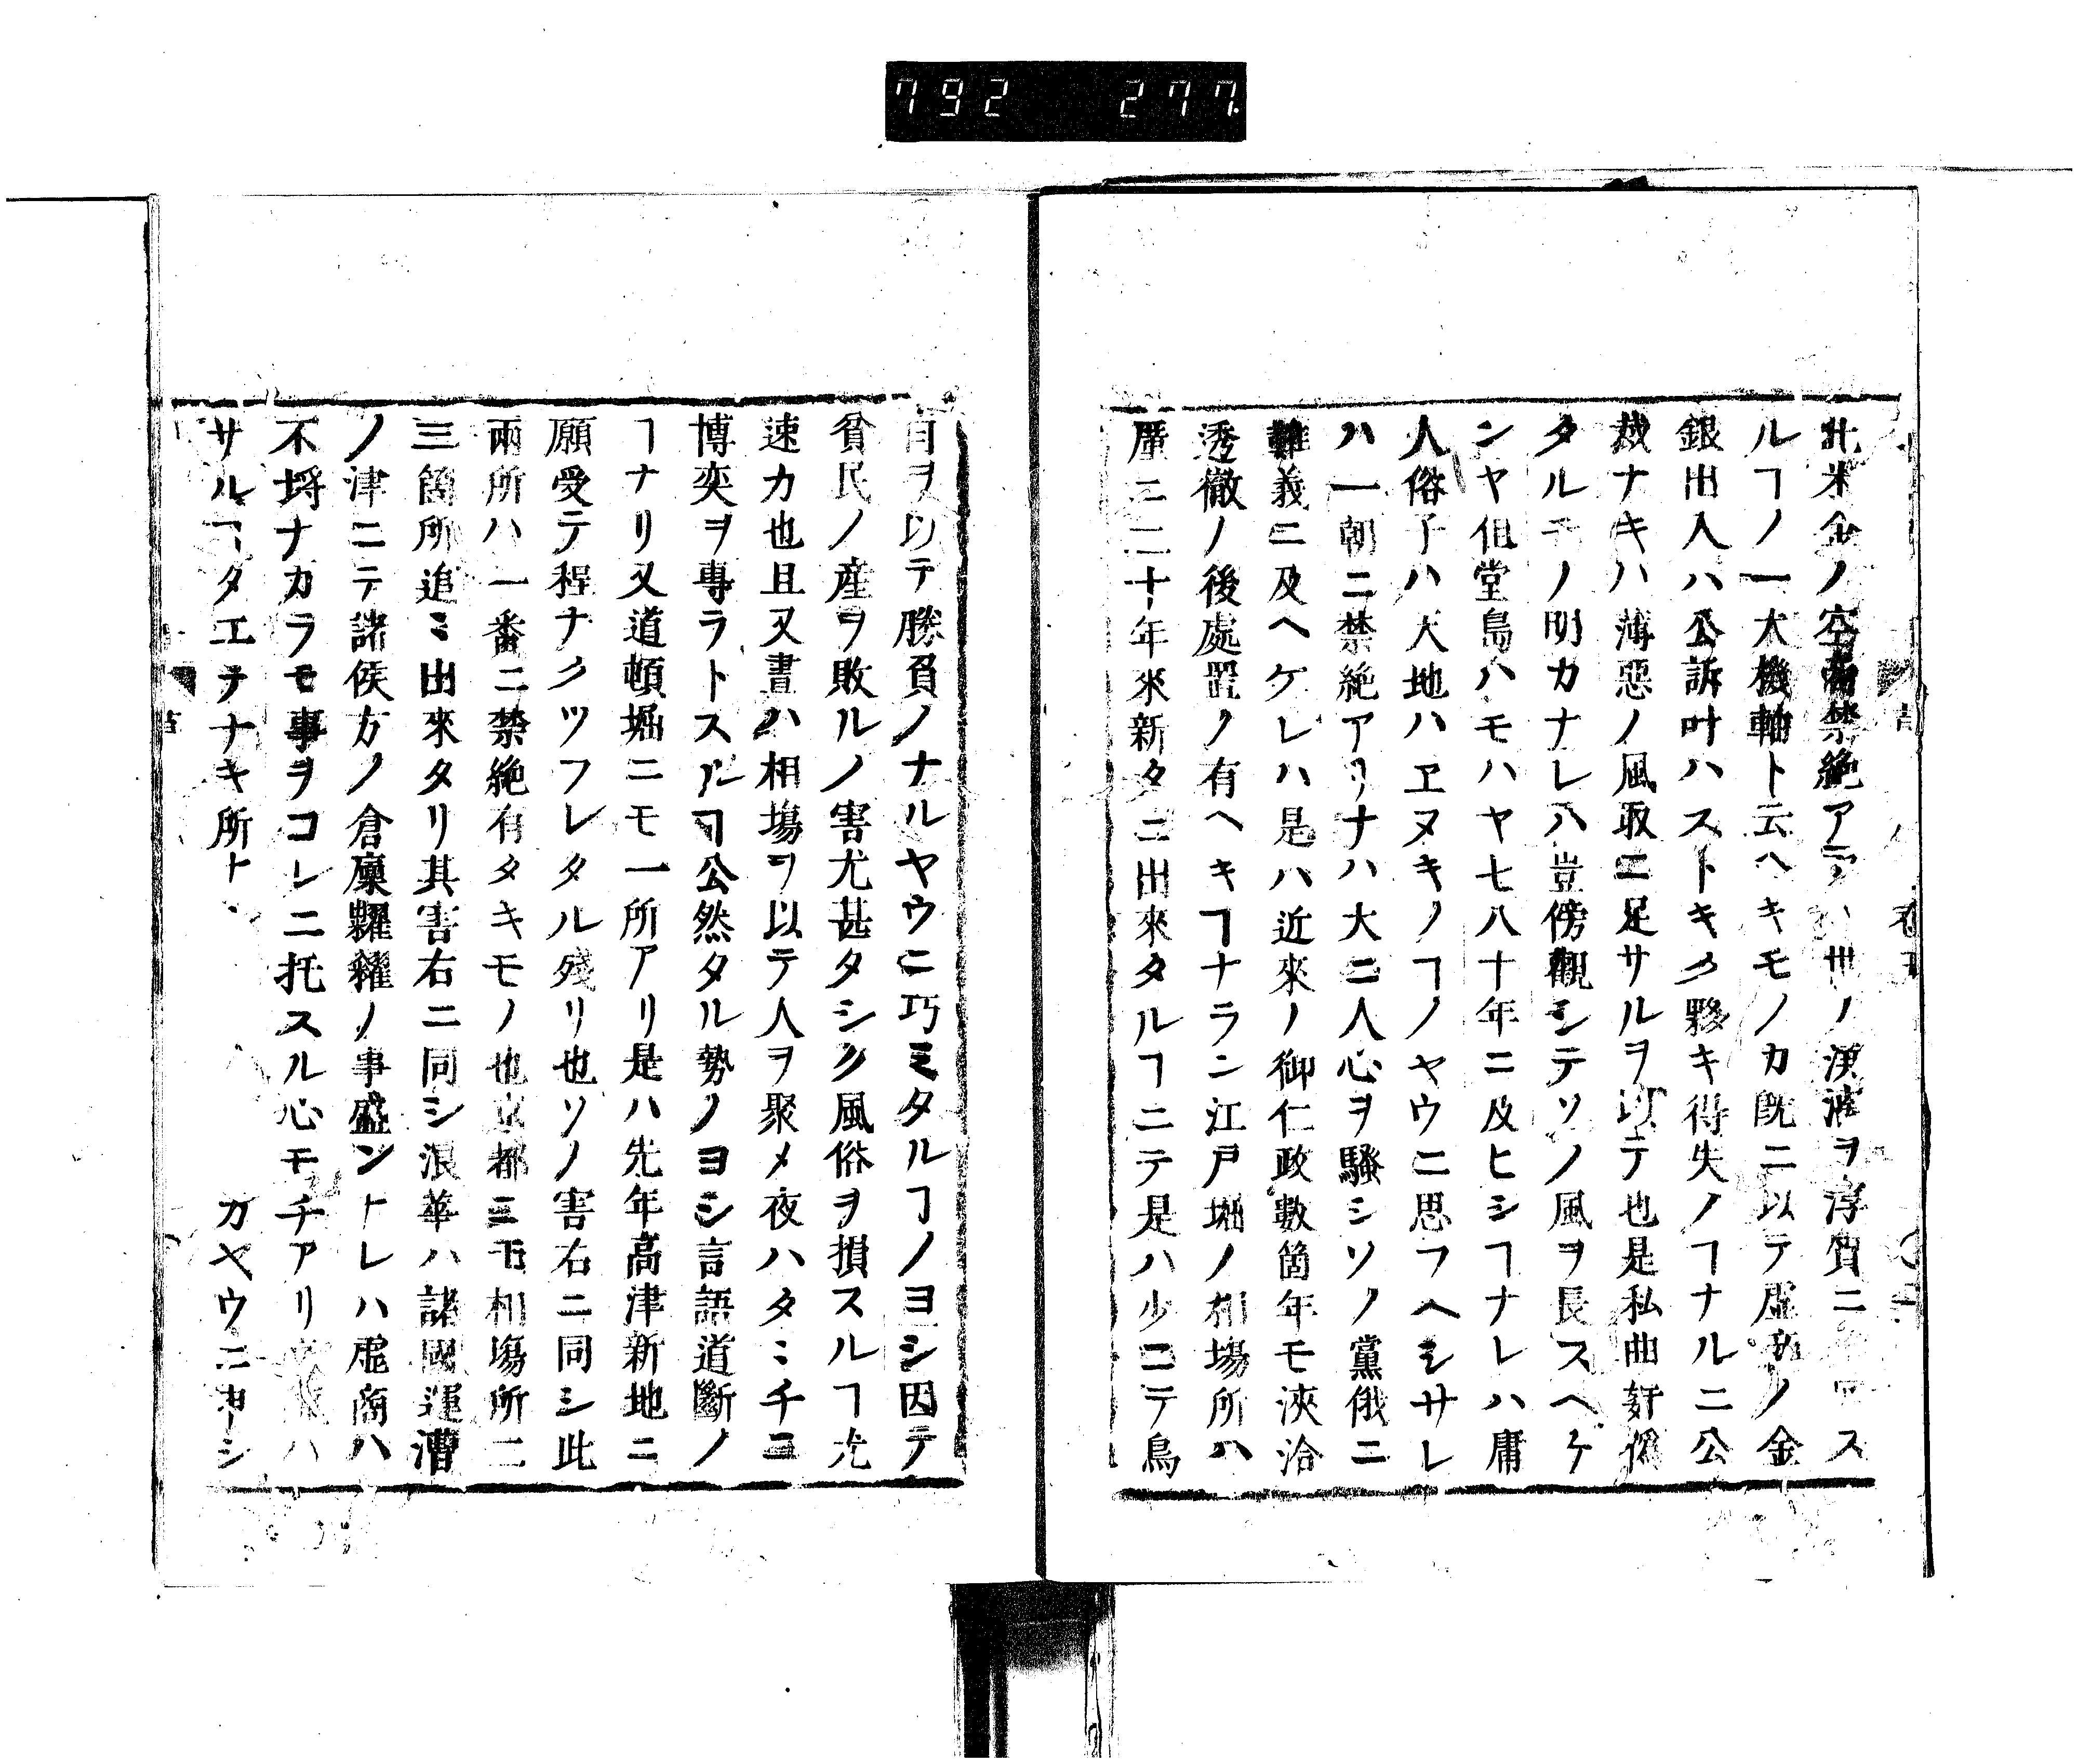 792 277
此米金ノ空商禁絶アラハ世ノ澆漓ヲ淳質ニス
ルヿノ一大機軸ト云ヘキモノカ既ニ以テ虚商ノ金
銀出入ハ公訴叶ハストキク夥キ得失ノヿナルニ公
裁ナキハ薄惡ノ風取ニ足サルヲ以テ也是私曲奸僞
タルヿノ明カナレハ豈傍觀シテソノ風ヲ長スヘケ
ンヤ但堂島ハモハヤ七八十年ニ及ヒシヿナレハ庸
人俗子ハ天地ハヱヌキノヿノヤウニ思フヘシサレ
ハ一朝ニ禁絶アリナハ大ニ人心ヲ騷シソノ黨俄ニ
難義ニ及ヘケレハ是ハ近來ノ御仁政數箇年モ浹洽
透徹ノ後處置ノ有ヘキヿナランニ江戸堀ノ相塲所ハ
厪ニ二十年來新タニ出來タルヿニテ是ハ少ニテ鳥
目ヲ以テ勝負ノナルヤウニ巧ミタルヿノヨシ因テ
貧民ノ産ヲ敗ルノ害尤甚タシク風俗ヲ損スルヿ尤
速カ也且又晝ハ相塲ヲ以テ人ヲ聚メ夜ハタミチニ
博奕ヲ專ラトスルヿ公然タル勢ノヨシ言語道斷ノ
ヿナリ又道頓堀ニモ一所アリ是ハ先年高津新地ニ
願受テ程ナクツフレタル殘リ也ソノ害右ニ同シ此
兩所ハ一番ニ禁絶有タキモノ也京都ニモ相塲所二
三箇所追ミ出來タリ其害右ニ同シ浪華ハ諸國運漕
ノ津ニテ諸侯方ノ倉廩糶糴ノ事盛ントレハ虚商ハ
不埒ナカラモ事ヲコレニ托スル心モチアリハ
サルヿタエテナキ所ト カヤウニオーシ